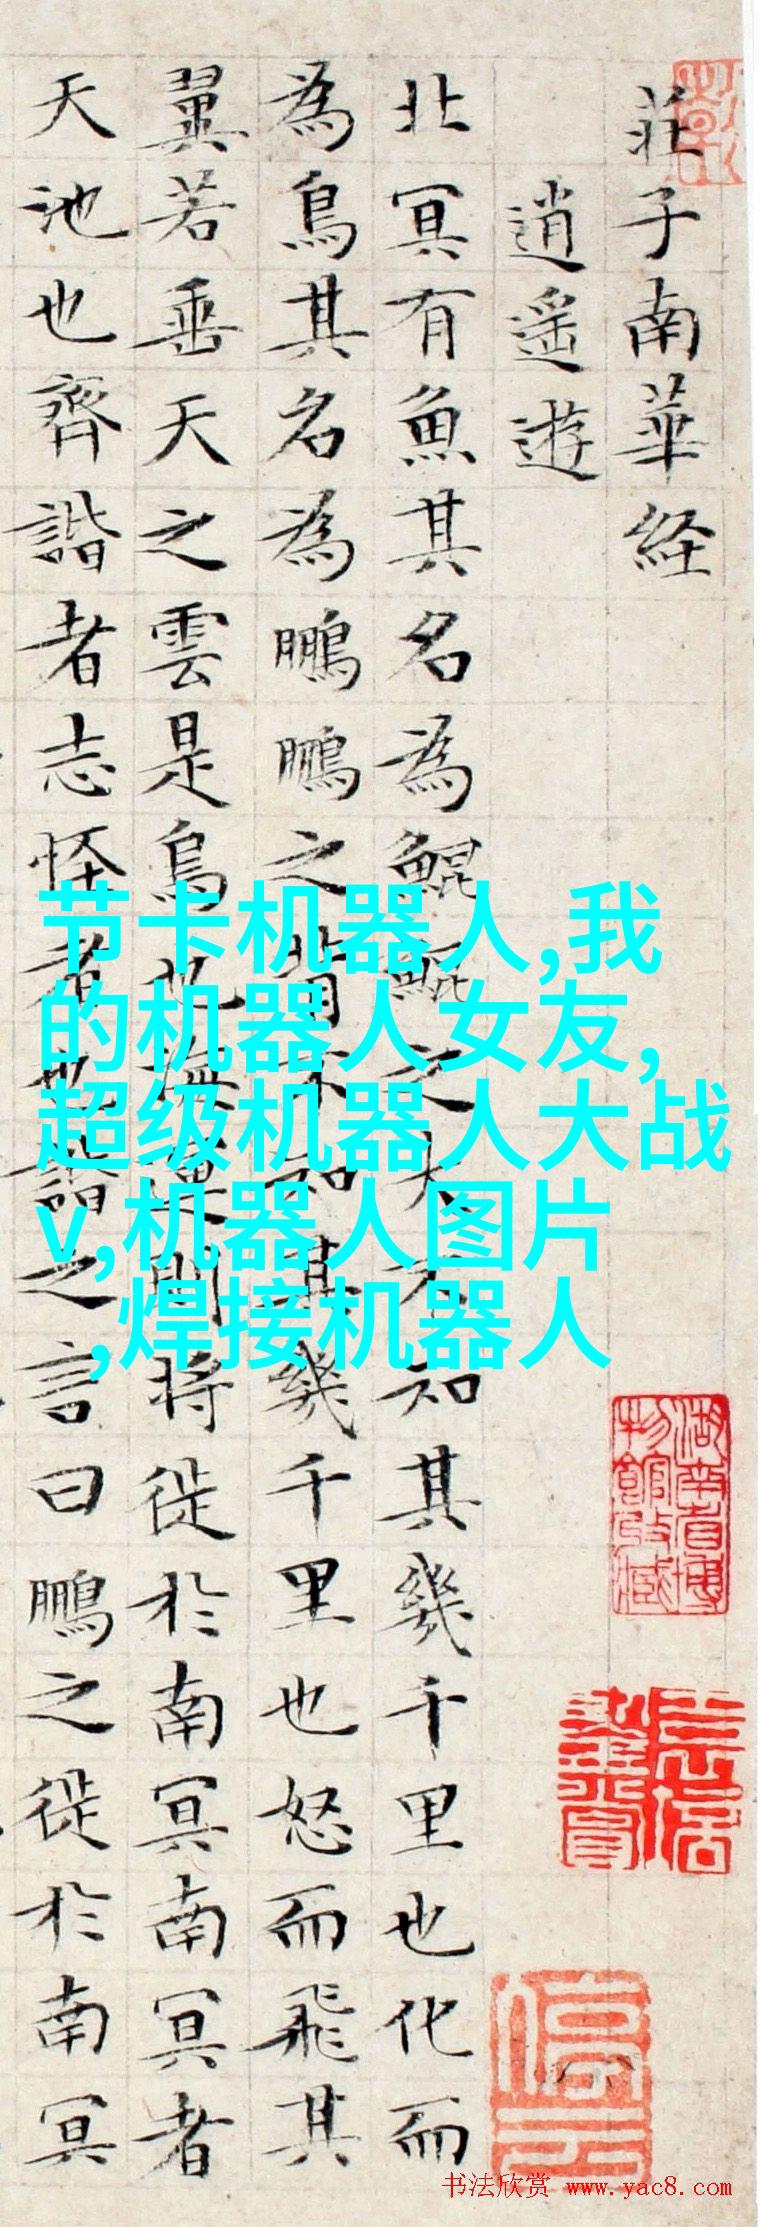 莊子南華経
逍遥遊
北冥有魚其名為鯤鯤之大不知其幾千里也化而
為鳥其名為鵬鵬之背不知其幾千里也怒而飛其
翼若垂天之雲是鳥也海運則将徙於南冥南冥者
天池也齊諧者志怪者也諧之言曰鵬之徙於南冥
节卡机器人,我
的机器人女友,
超级机器人大战
v,机器人图片
,焊接机器人
湖南省博
物館收藏
书法欣赏 www.yac8.com